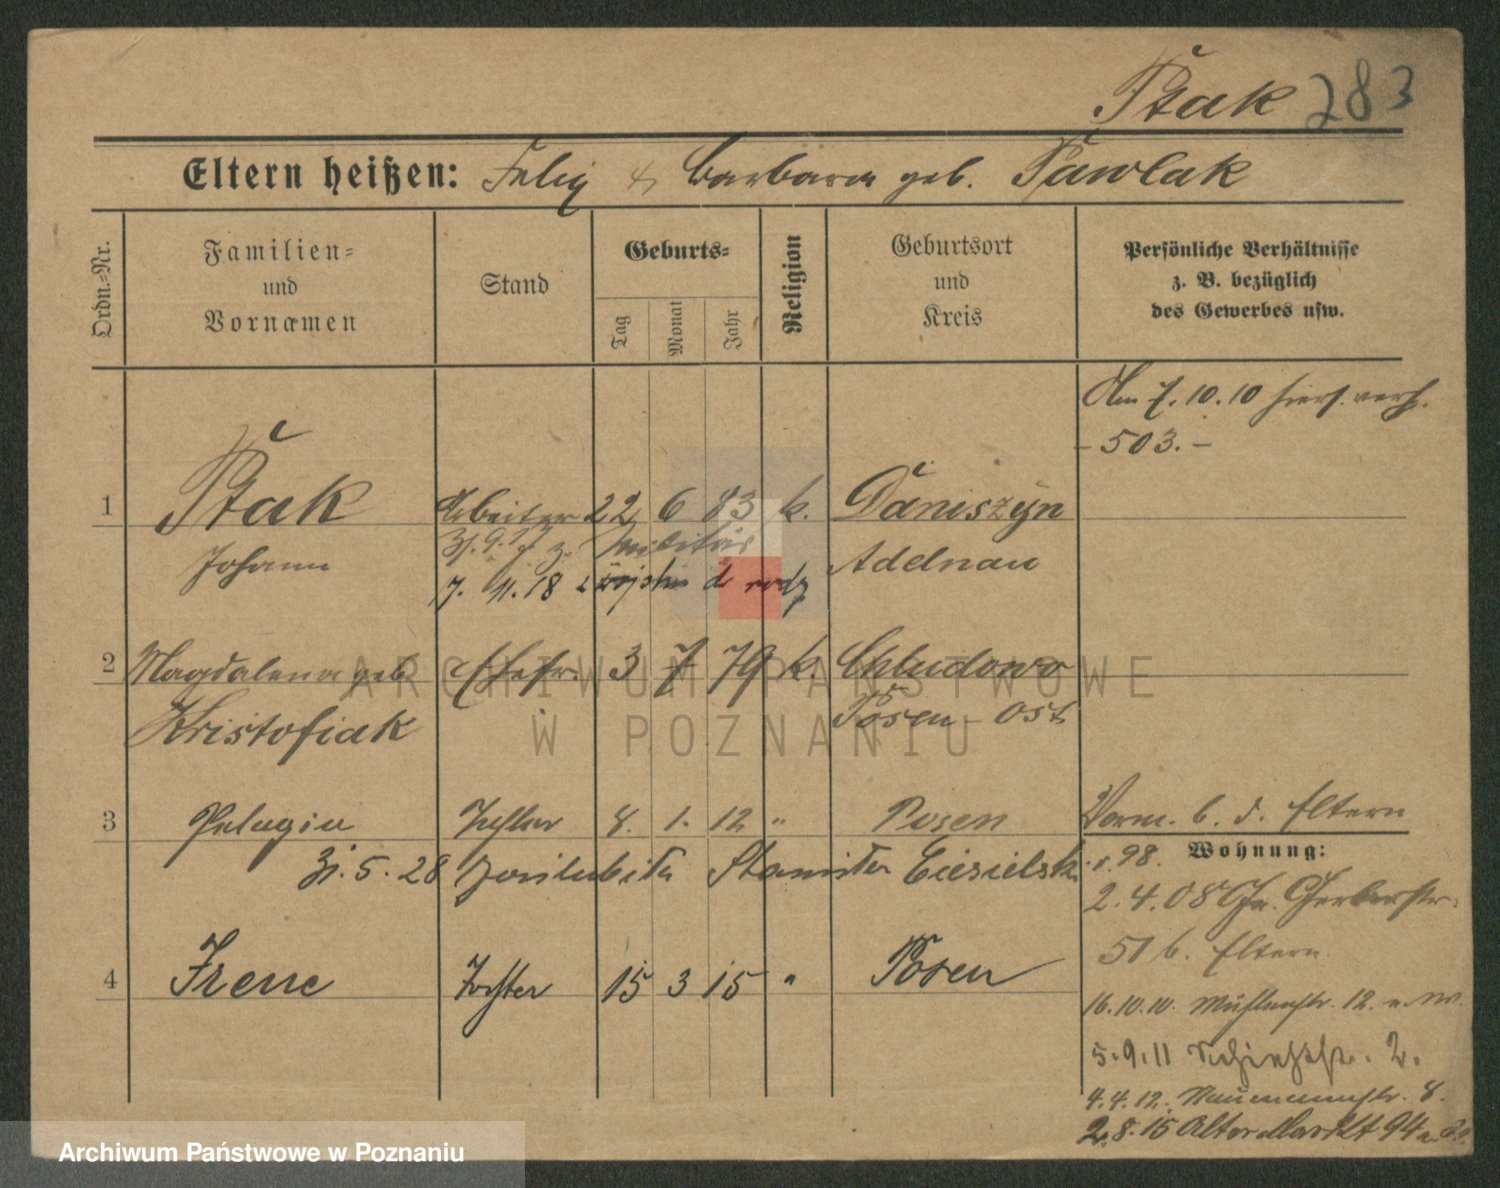 Ptak 283
Eltern heißen: Felix & Barbara geb. Pawlak
Ordn.=Nr.
Familien=
und
Vornamen
Stand
Geburts=
Tag
Monat
Jahr
Religion
Geburtsort
und
Kreis
Persönliche Verhältnisse
z. B. bezüglich
des Gewerbes usw.
Am 7. 10. 10 hiers. verh.
- 503. -
1 Ptak Arbeiter 22 6 83 k. Daniszyn
Johann 9. 17 z. Militär Adelnau
7. 11. 18
2 Magdalena geb. Ehefr. 3 7 79 k. Chludowo
Kristofiak Posen - Ost
3 Pelagia Tochter 8. 1. 12 " Posen
Vorm. b. d. Eltern
5. 28
Wohnung:
98.
2. 4. 08 Gr. Gerberstr.
51 b. Eltern
4 Irene Tochter 15 3 15 " Posen
16. 10. 10. Mühlenstr. 12.
5. 9. 11 2.
4. 4. 12. 8.
2. 8. 15 Alter Markt 94
ARCHIWUM PAŃSTWOWE
W POZNANIU
Archiwum Państwowe w Poznaniu